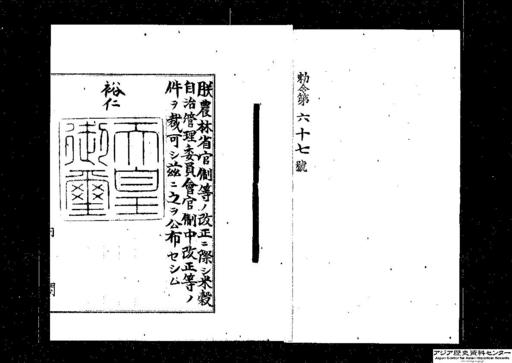 勅令第六十七號
朕農林省官制等ノ改正ニ際シ米穀
自治管理委員會官制中改正等ノ
件ヲ裁可シ玆ニ之ヲ公布セシム
裕仁
天皇
御璽
内
閣
アジア歴史資料センター
Japan Center for Asian Historical Records